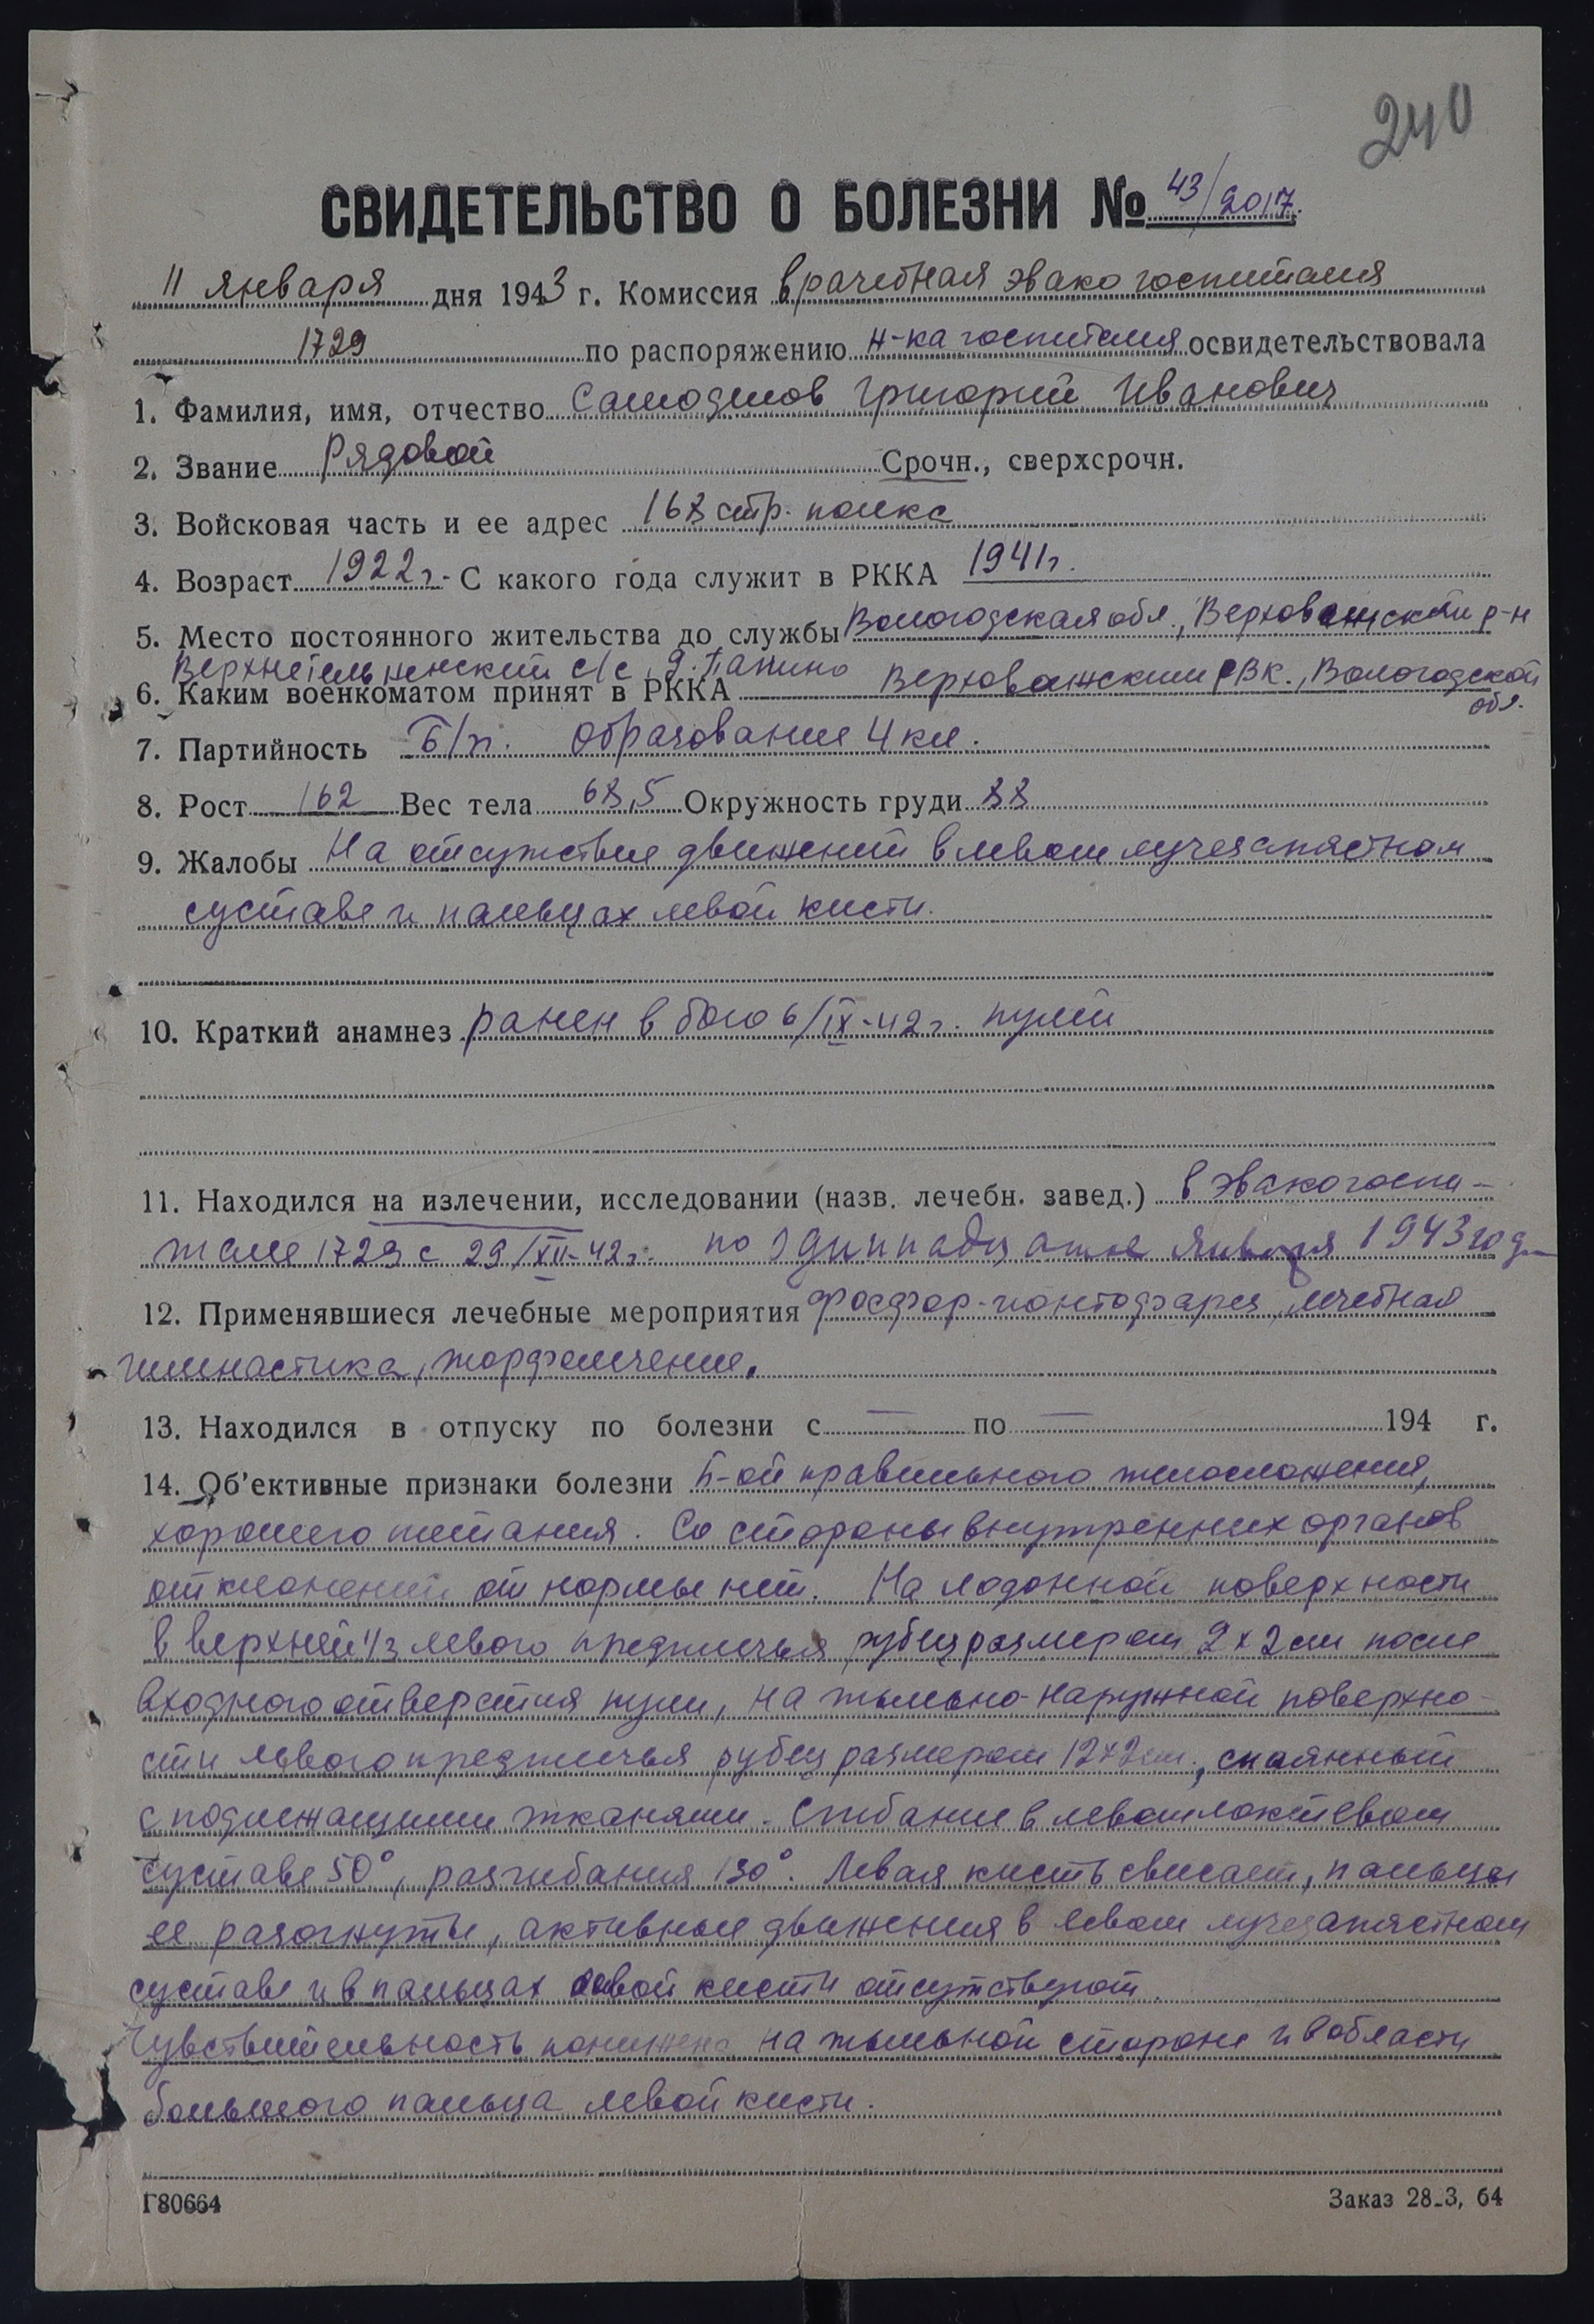 240
СВИДЕТЕЛЬСТВО О БОЛЕЗНИ № 43/2017.
11 января дня 1943 г. Комиссия врачебная эвакогоспиталя
1729 по распоряжению н-ка госпиталя освидетельствовала
1. Фамилия, имя, отчество Самодуров Григорий Иванович
2. Звание Рядовой Срочн., сверхсрочн.
3. Войсковая часть и ее адрес 168 стр. полка
4. Возраст 1922 г. С какого года служит в РККА 1941 г.
5. Место постоянного жительства до службы Вологодская обл., Верховажский р-н
с/с, д. Папино
6. Каким военкоматом принят в РККА Верховажским РВК., Вологодской
обл.
7. Партийность Б/п. образование 4 кл.
8. Рост 162 Вес тела 68,5 Окружность груди 88
9. Жалобы На отсутствие движений в левом лучезапястном
суставе и пальцах левой кисти.
10. Краткий анамнез ранен в бою 6/IX-42 г. пулей
11. Находился на излечении, исследовании (назв. лечебн. завед.) в эвакогоспи-
тале 1729 с 29/XII-42 г. по одиннадцатое января 1943 год
12. Применявшиеся лечебные мероприятия лечебная
гимнастика, торфолечение.
13. Находился в отпуску по болезни с — по — 194 г.
14. Об'ективные признаки болезни Б-ой правильного телосложения,
хорошего питания. Со стороны внутренних органов
отклонений от нормы нет. На ладонной поверхности
в верхней 1/3 левого предплечья рубец размером 2 х 2 см после
входного отверстия пули, на тыльно-наружной поверхно-
сти левого предплечья рубец размером 12х2 см., спаянный
с подлежащими тканями. Сгибание в левом локтевом
суставе 50°, разгибания 130°. Левая кисть свисает, пальцы
ее разогнуты, активные движения в левом лучезапястном
суставе и в пальцах левой кисти отсутствуют.
Чувствительность понижена на тыльной стороне и в области
большого пальца левой кисти.
Г80664 Заказ 28_3, 64